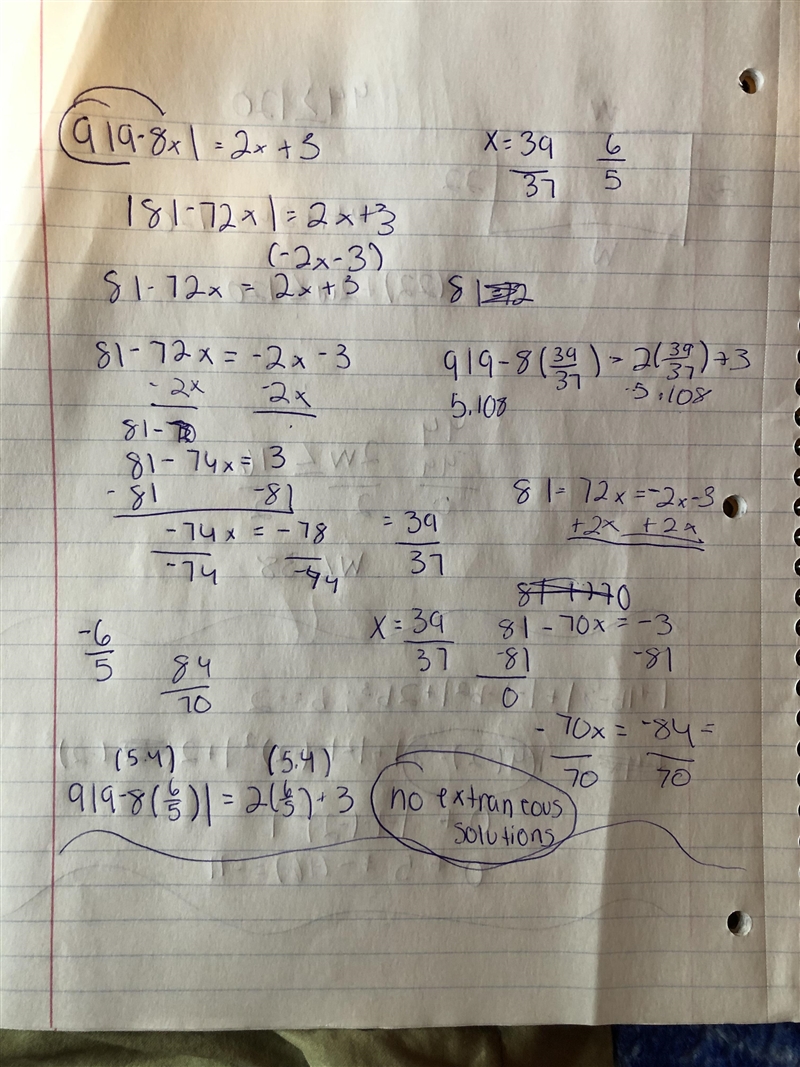 9|9-8x| = 2x + 3
x = 39/37 6/5
|81-72x| = 2x+3
(-2x-3)
81-72x = 2x+3
81
81-72x = -2x-3
-2x -2x
81-
81-74x = 3
-81 -81
-74x = -78 = 39/37
-74 -74
9|9-8(39/37) = 2(39/37)+3
5.108 5.108
81-72x = -2x-3
+2x +2x
x = 39/37
81-70x = -3
-81 -81
0
-70x = -84 =
70 70
-6/5 84/70
(5.4) (5.4)
9|9-8(6/5)| = 2(6/5)+3
no extraneous
solutions